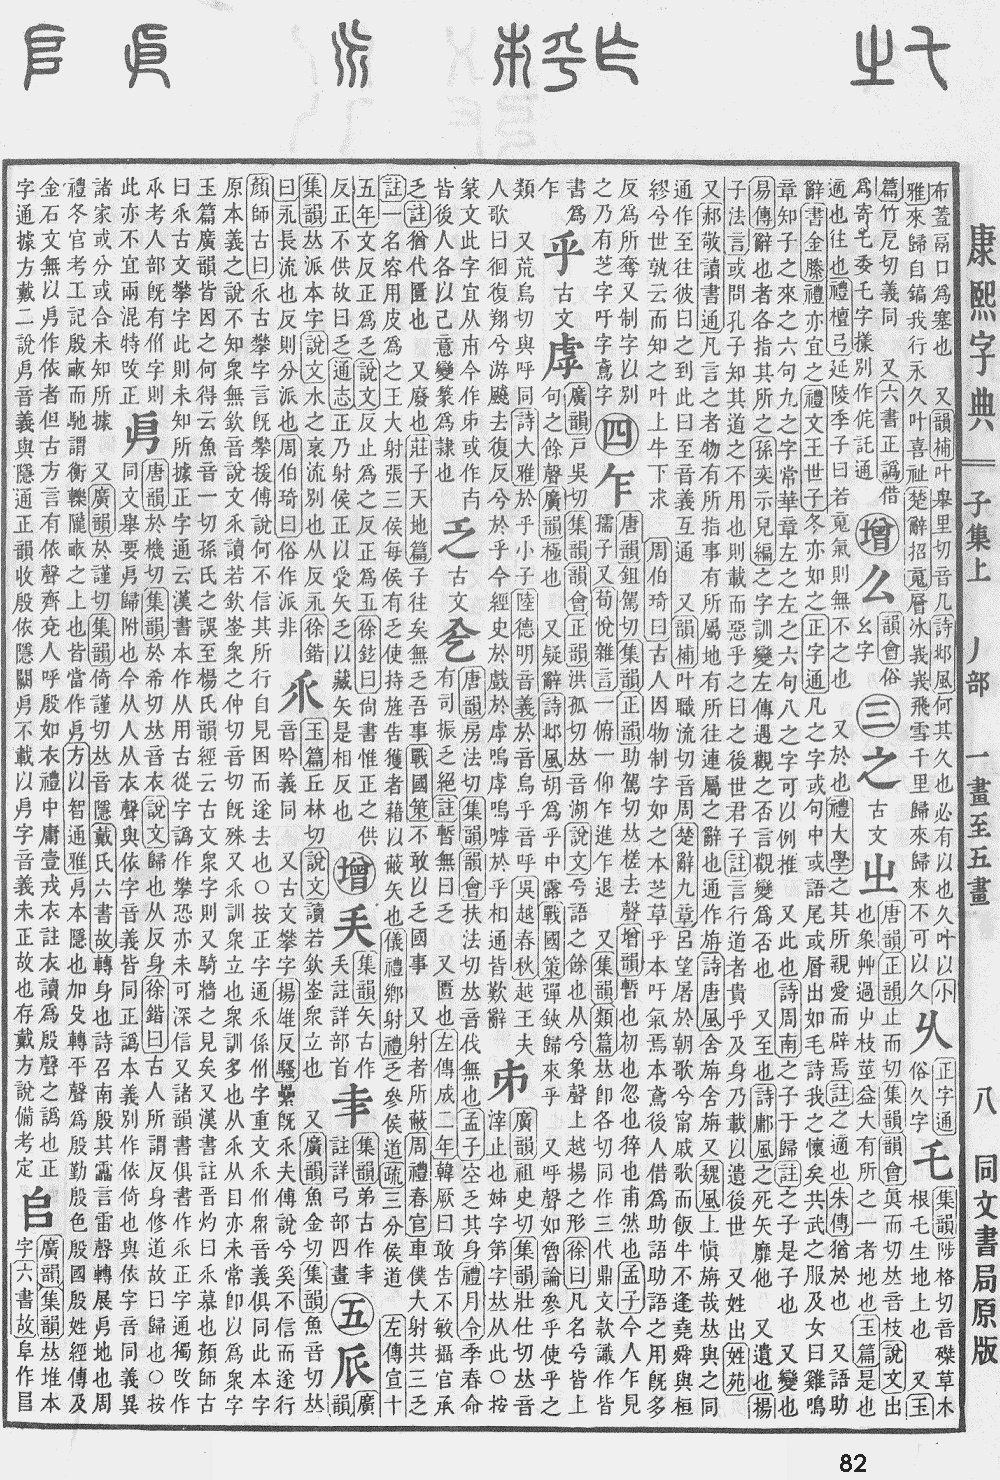 康熙字典 子集上 丿部 一畫至五畫 八 同文書局原版
布蓋鬲口爲塞也 又韻補叶舉里切音几詩邶風何其久也必有以也久叶以小
雅來歸自鎬我行永久叶喜祉楚辭招䰟層冰峩峩飛雪千里歸來歸來不可以久
俗久字
正字通
乇
集韻陟格切音磔草木
根乇生地上也 又玉
篇竹尼切義同 又六書正譌借
爲寄乇委乇字㨾別作侂託通
增
么
韻會俗
幺字
三
之
古文
㞢
唐韻正韻止而切集韻韻會眞而切𠀤音枝說文出
也象艸過屮枝莖益大有所之一者地也玉篇是也
適也往也禮檀弓延陵季子曰若䰟氣則無不之也 又於也禮大學之其所親愛而辟焉註之適也朱傳猶於也 又語助
辭書金縢禮亦宜之禮文王世子冬亦如之正字通凡之字或句中或語尾或層出如毛詩我之懷矣共武之服及女曰雞鳴
章知子之來之六句九之字常華章左之左之六句八之字可以例推 又此也詩周南之子于歸註之子是子也 又變也
易傳辭也者各指其所之孫奕示兒編之字訓變左傳遇觀之否言觀變爲否也 又至也詩鄘風之死矢靡他 又遺也揚
子法言或問孔子知其道之不用也則載而惡乎之曰之後世君子註言行道者貴乎及身乃載以遺後世 又姓出姓苑
又郝敬讀書通凡言之者物有所指事有所屬地有所往連屬之辭也通作旃詩唐風舍旃舍旃又魏風上愼旃哉𠀤與之同
通作至往彼曰之到此曰至音義互通 又韻補叶職流切音周楚辭九章呂望屠於朝歌兮甯戚歌而飯牛不逢堯舜與桓
繆兮世孰云而知之叶上牛下求 周伯琦曰古人因物制字如之本芝草乎本吁氣焉本鳶後人借爲助語助語之用旣多
反爲所奪又制字以別
之乃有芝字吁字鳶字
四
乍
唐韻鉏駕切集韻正韻助駕切𠀤槎去聲增韻暫也初也忽也猝也甫然也孟子今人乍見
孺子又荀悅雜言一俯一仰乍進乍退 又集韻類篇𠀤卽各切同作三代鼎文款識作皆
書爲
乍
乎
古文
虖
廣韻戸吳切集韻韻會正韻洪孤切𠀤音湖說文兮語之餘也从兮象聲上越揚之形徐曰凡名兮皆上
句之餘聲廣韻極也 又疑辭詩邶風胡爲乎中露戰國策彈鋏歸來乎 又呼聲如曾論參乎使乎之
類 又荒烏切與呼同詩大雅於乎小子陸德明音義於音烏乎音呼吳越春秋越王夫
人歌曰徊復翔兮游颺去復反兮於乎今經史於戲於虖嗚虖嗚嘑於乎相通皆歎辭
廣韻祖史切集韻壯仕切𠀤音
滓止也姊字第字𠀤从此○按
篆文此字宜从
皆後人各以己意變篆爲隷也
乏
古文
唐韻房法切集韻韻會扶法切𠀤音伐無也孟子空乏其身禮月令季春命
有司振乏絕註暫無曰乏 又匱也左傳成二年韓厥曰敢告不敏攝官承
乏註猶代匱也 又廢也莊子天地篇子往矣無乏吾事戰國策不敢以乏國事 又射者所蔽周禮春官車僕大射共三乏
註一名容用皮爲之王大射張三侯每侯有乏使持旌告獲者藉以蔽矢也儀禮鄕射禮乏參侯道疏三分侯道 左傳宣十
五年文反正爲乏說文反止爲之反正爲𤴓徐鉉曰尙書惟正之供
反正不供故曰乏通志正乃射侯正以受矢乏以藏矢是相反也
增
集韻矢古作
註詳部首
集韻弟古作
註詳弓部四畫
五
𠂢
廣韻
集韻𠀤派本字說文水之衺流別也从反𣱵徐鍇
曰𣱵長流也反則分派也周伯琦曰俗作派非
乑
玉篇丘林切說文讀若欽崟衆立也 又廣韻魚金切集韻魚音切𠀤
音吟義同 又古文攀字揚雄反騷纍旣乑夫傳說兮奚不信而遂行
顏師古曰乑古攀字言旣攀援傅說何不信其所行自見困而遂去也○按正字通乑係㐺字重文乑㐺衆音義俱同此本字
原本義之說不知衆無欽音說文乑讀若欽崟衆之仲切音切旣殊又乑訓衆立也衆訓多也从乑从目亦未常卽以爲衆字
玉篇廣韻皆因之何得云魚音一切孫氏之誤至楊氏韻經云古文衆字則又騎牆之見矣又漢書註晋灼曰乑慕也顏師古
曰乑古文攀字此則未知所據正字通云漢書本作从用古從字譌作攀恐亦未可深信又諸韻書俱書作乑正字通獨攺作
乑考人部旣有㐺字則
此亦不宜兩混特攺正
㐆
唐韻於機切集韻於希切𠀤音衣說文歸也从反身徐鍇曰古人所謂反身修道故曰歸也○按
同文舉要㐆歸附也今从人从衣聲與依字音義皆同正譌本義別作依倚也與依字音同義異
諸家或分或合未知所據 又廣韻於謹切集韻倚謹切𠀤音隱戴氏六書故轉身也詩召南殷其靁言雷聲轉展㐆地也周
禮冬官考工記殷畝而馳謂衡轢隴畝之上也皆當作㐆方以智通雅㐆本隱也加殳轉平聲爲殷勤殷色殷國殷姓經傳及
金石文無以㐆作依者但古方言有依聲齊兗人呼殷如衣禮中庸壹戎衣註衣讀爲殷聲之譌也正
字通據方戴二說㐆音義與隱通正韻收殷依隱關㐆不載以㐆字音義未正故也存戴方說備考定
𠂤
廣韻集韻𠀤堆本
字六書故阜作𨸏
82